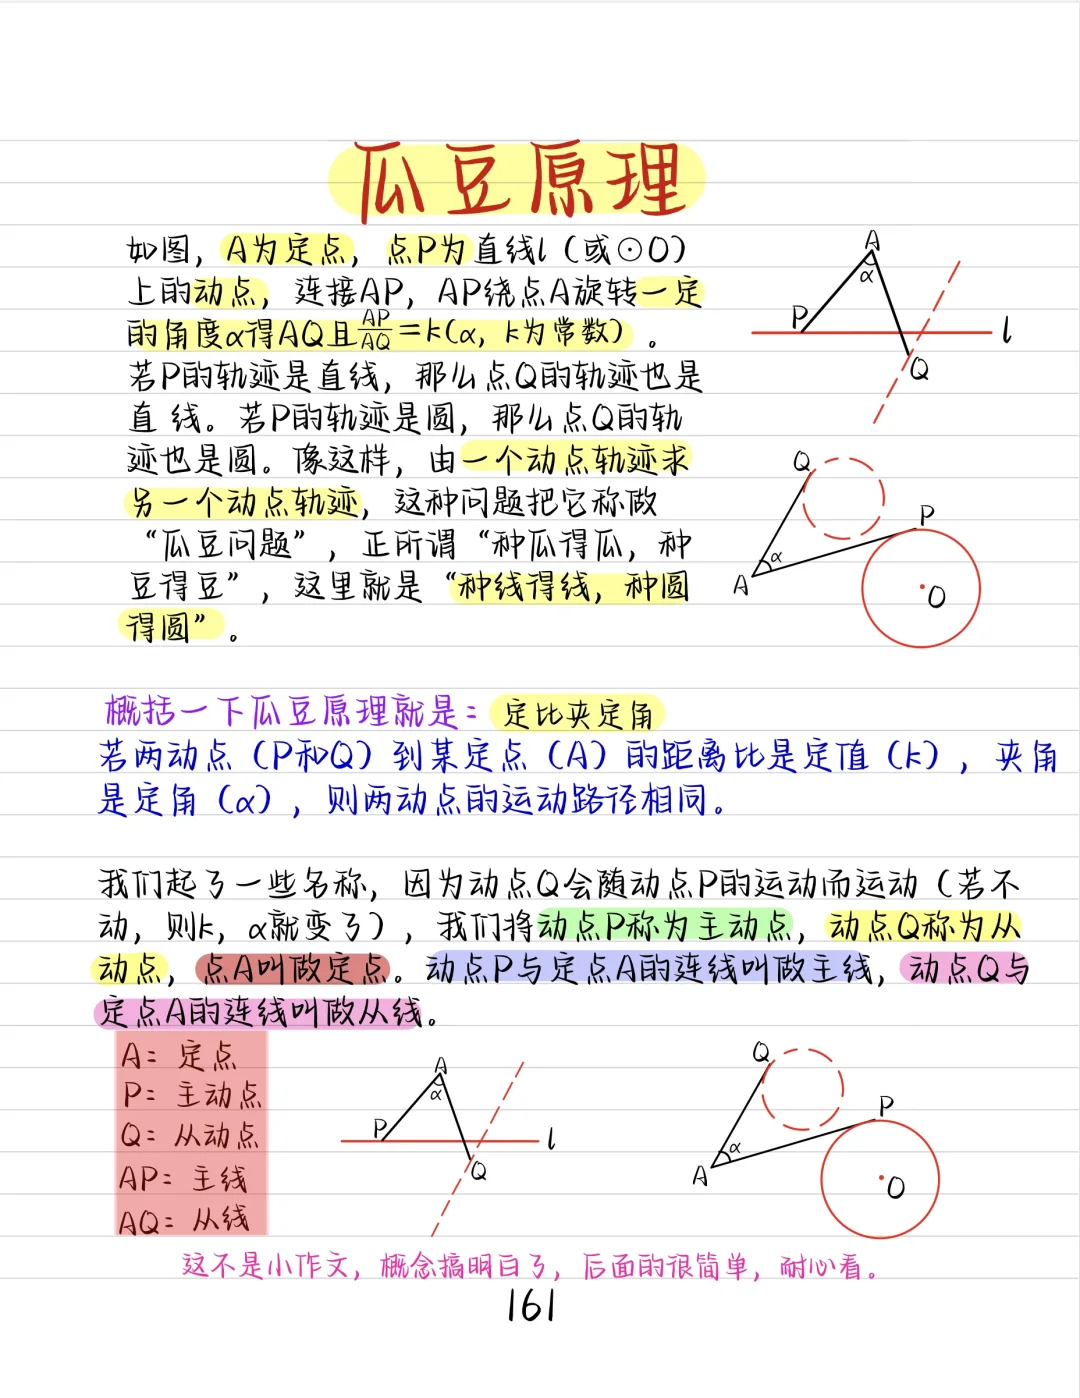 瓜豆原理
如图，A为定点，点P为直线l（或⊙O）
上的动点，连接AP，AP绕点A旋转一定
的角度α得AQ且AP/AQ=k(α，k为常数）。
若P的轨迹是直线，那么点Q的轨迹也是
直线。若P的轨迹是圆，那么点Q的轨
迹也是圆。像这样，由一个动点轨迹求
另一个动点轨迹，这种问题把它称做
“瓜豆问题”，正所谓“种瓜得瓜，种
豆得豆”，这里就是“种线得线，种圆
得圆”。
A
α
P
l
Q
Q
P
α
A
O
概括一下瓜豆原理就是：定比夹定角
若两动点（P和Q）到某定点（A）的距离比是定值（k），夹角
是定角（α），则两动点的运动路径相同。
我们起了一些名称，因为动点Q会随动点P的运动而运动（若不
动，则k，α就变了），我们将动点P称为主动点，动点Q称为从
动点，点A叫做定点。动点P与定点A的连线叫做主线，动点Q与
定点A的连线叫做从线。
A：定点
P：主动点
Q：从动点
AP：主线
AQ：从线
A
α
P
l
Q
Q
P
α
A
O
这不是小作文，概念搞明白了，后面的很简单，耐心看。
161